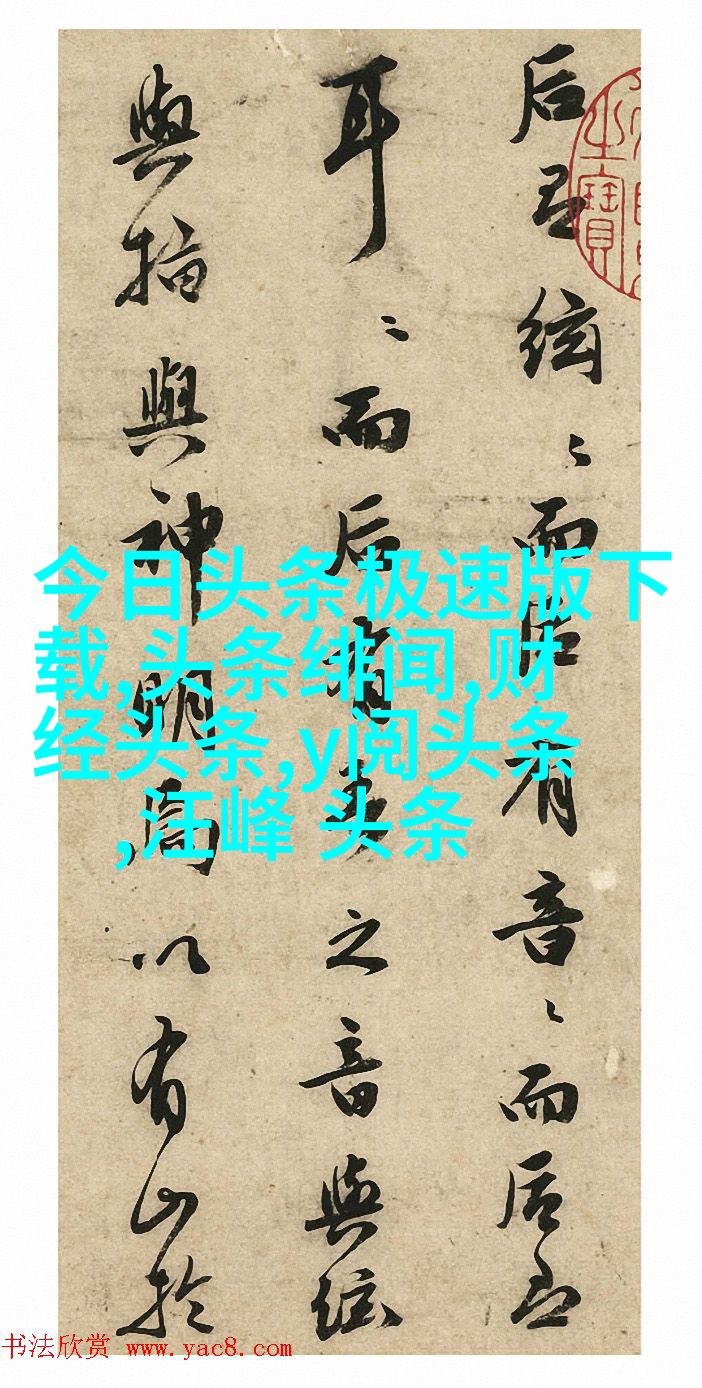 后絃〻而后有音〻而后
耳〻而后有之音與絃
與指與神明以有於
今日头条极速版下
载,头条绯闻,财
经头条,y阅头条
,汪峰 头条
之寶
书法欣赏 www.yac8.com